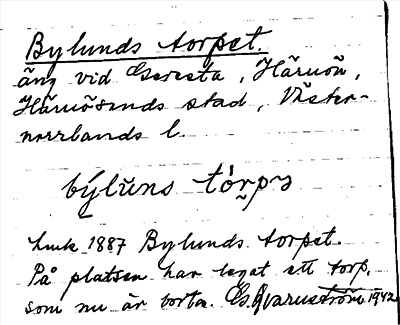 Bylunds torpet.
äng vid Geresta, Härnön,
Härnösands stad, Väster-
norrlands l.
býlŭns tórpə
Lmk 1887 Bylunds torpet.
På platsen har legat ett torp,
som nu är borta. 1942